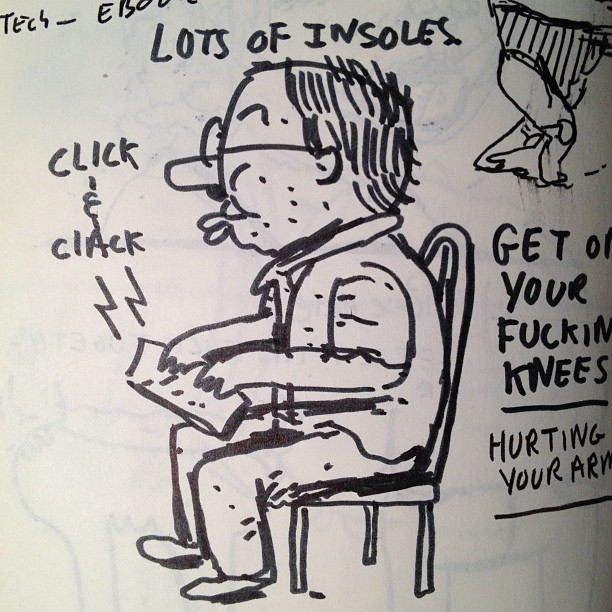 TECH — EBOO
LOTS OF INSOLES.
CLICK
&
CLACK
GET ON
YOUR
FUCKIN
KNEES
HURTING
YOUR ARM